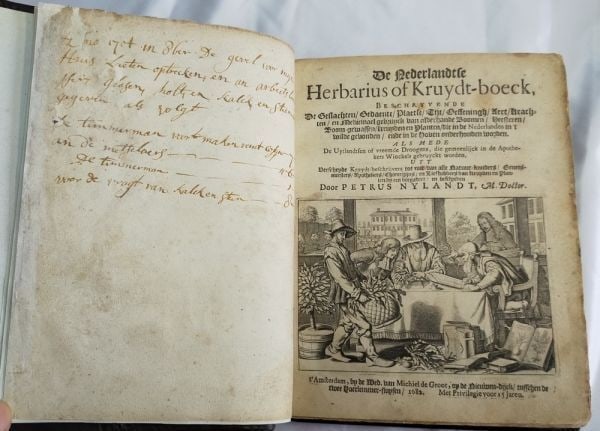 in 8ber De gevel van mijn
Huis
gegeven als volgt
de timmerman voor
aan de metselaers
De timmerman
voor de vragt van kalk en sten
De Nederlandtse
Herbarius of Kruydt-boeck,
BESCHRYVENDE
De Geslachten, Gedaente, Plaetse, Tijt, Oeffeningh, Aert, Krach-
ten, en Medicinael gebruyck van alderhande Boomen, Heesteren,
Boom-gewassen, Kruyden en Planten, die in de Nederlanden in 't
wilde gevonden, ende in de Hoven onderhouden worden.
ALS MEDE
De Uytlandtsen of vreemde Droogens, die gemeenlijck in de Apothe-
kers Winckels gebruyckt worden,
UIT
Verscheyde Kruydt-beschrijvers tot nut van alle Natuur-kunders, Genees-
meesters, Apothekers, Chirurgijns, en Liefhebbers van Kruyden en Plan-
ten by een vergadert en beschreven
Door PETRUS NYLANDT, M. Doctor.
t'Amsterdam, by de Wed. van Michiel de Groot, op de Nieuwen-dijck, tusschen de
twee Haerlemmer-sluysen, 1682. Met Privilegie voor 15 Jaren.